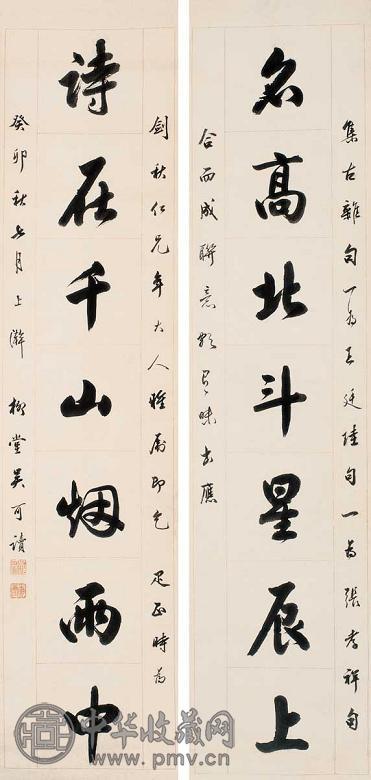 集古雜句一為王廷珪句一為張孝祥句
名高北斗星辰上
合而成聯意頗有味書應
劍秋仁兄年大人雅屬即乞 正時為
詩在千山烟雨中
癸卯秋七月上澣 柳堂吳可讀
中华收藏网
www.pmv.cn
中华收藏网
www.pmv.cn